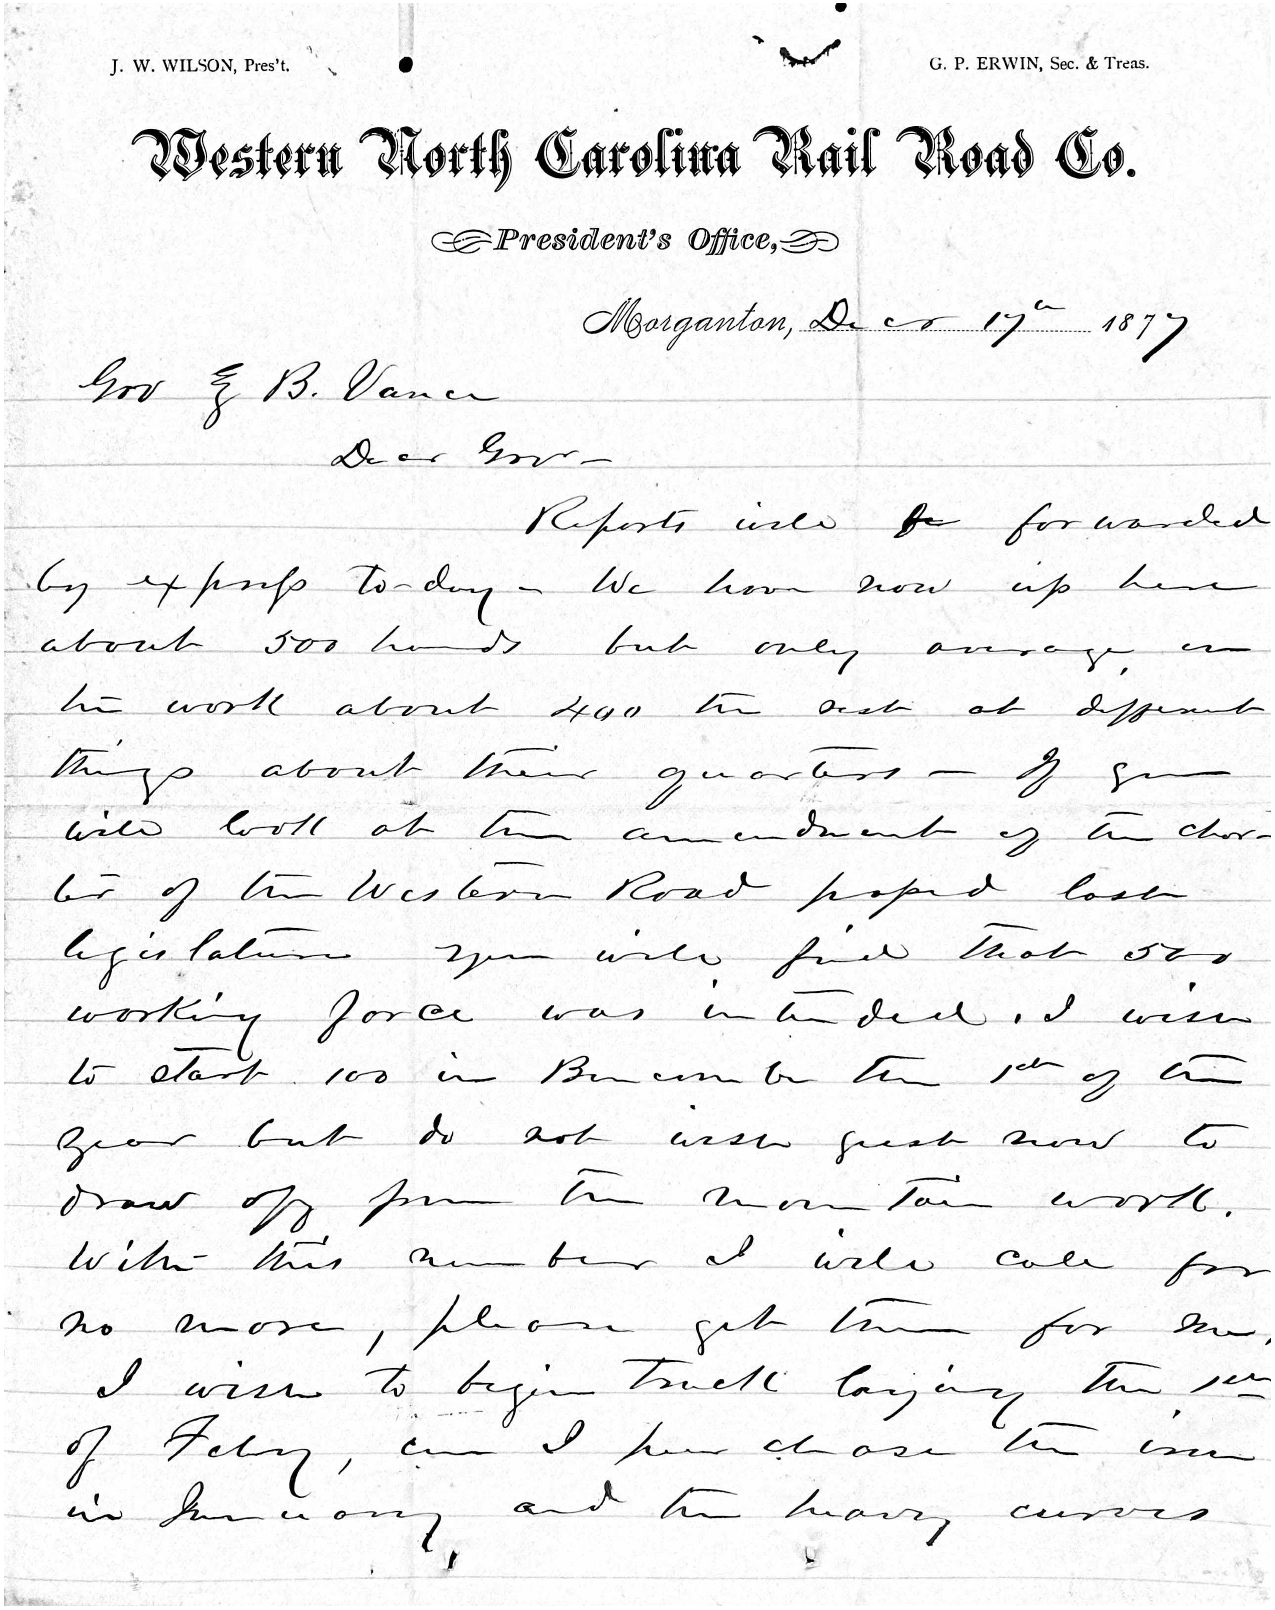 J. W. WILSON, Pres't.
G. P. ERWIN, Sec. & Treas.
Western North Carolina Rail Road Co.
President's Office,
Morganton, Decr 17th 1877
Gov Z B. Vance
Dear Gov —
Reports will be forwarded
by express to-day — We have now up here
about 500 hands but only average on
the work about 400 the rest at different
things about their quarters — If you
will look at the amendment of the char-
ter of the Western Road passed last
legislature you will find that 500
working force was intended. I wish
to start 100 in Buncombe the 1st of the
year but do not wish just now to
draw off from the mountain work.
With this number I will call for
no more, please get them for me,
I wish to begin track laying the 1st
of Feby, can I purchase the iron
in January and the heavy curves